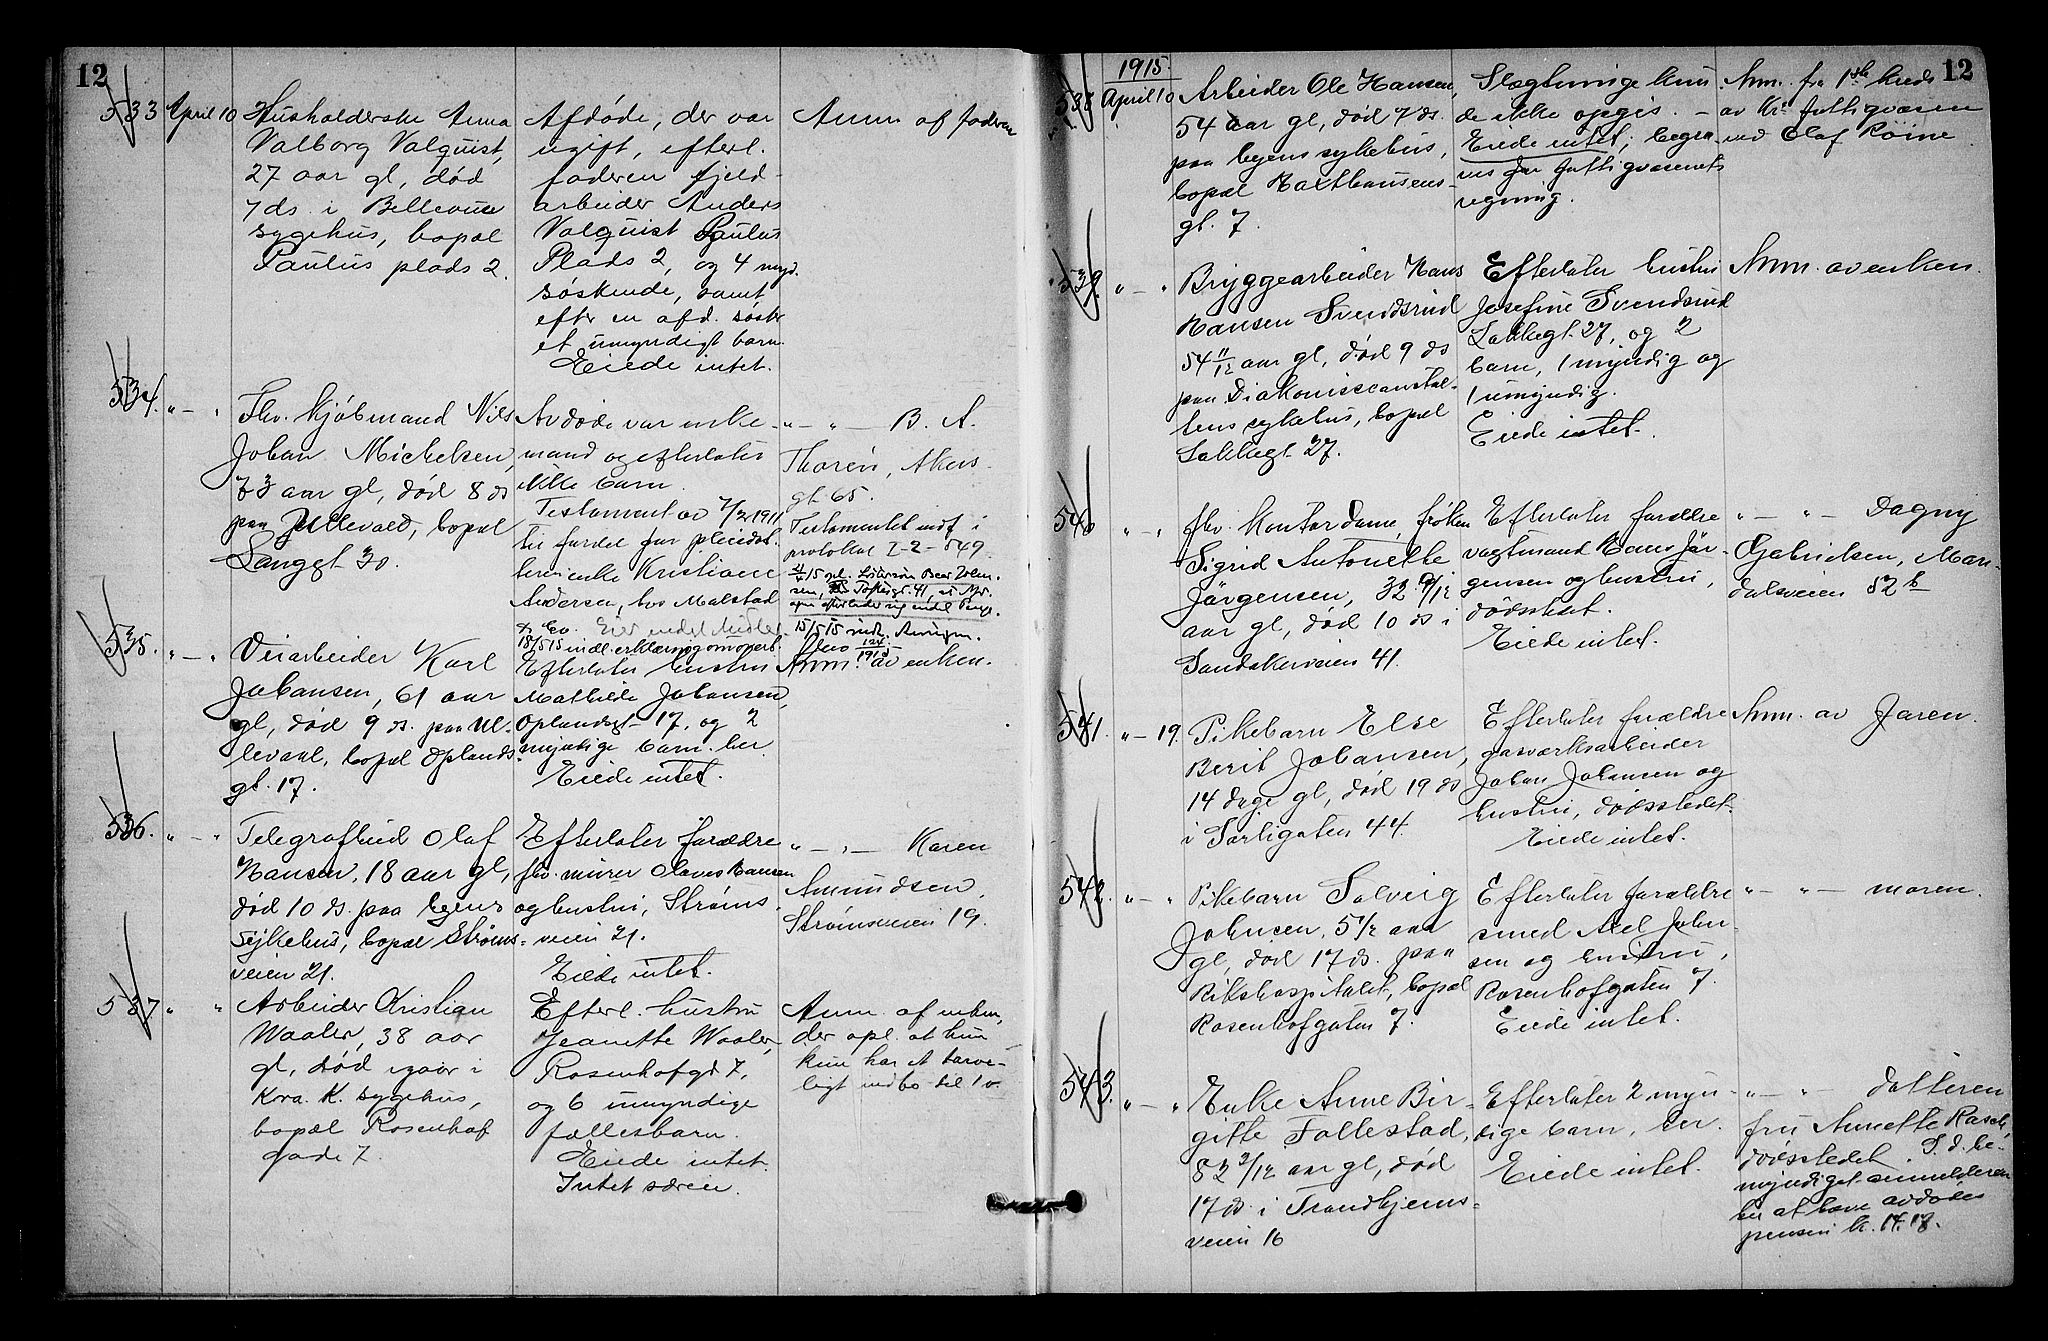 12
533
April 10
Husholderske Anna
Valborg Valquist,
27 aar gl, død
7 ds. i Bellevue
sygehus, bopæl
Paulus plads 2.
Afdøde, der var
ugift, efterl.
faderen fjeld-
arbeider Anders
Valquist Paulus
Plads 2, og 4 mynd.
søskende, samt
efter en afd. søster
et umyndigt barn.
Eiede intet.
Anm. af faderen
534.
" — "
Fhv. kjøbmand Nils
Johan Michelsen,
73 aar gl, død 8 ds
paa Ullevaal, bopæl
Langgt 30.
Avdøde var enke-
mand og efterlater
ikke barn.
Testament av 7/2 1911
til fordel for pleiedat-
teren enke Kristiane
Andersen, hos Malstad
15/5 15 indl. erklæring om
" — " — B. A.
Thorén, Akers-
gt 65.
Testamentet indf i
protokol I-2-549.
15/5 15 indk.
535.
" — "
Veiarbeider Karl
Johansen, 61 aar
gl, død 9 ds. paa Ul-
levaal, bopæl Oplands-
gt. 17.
Efterlater hustru
Mathilde Johansen,
Oplandsgt 17, og 2
myndige barn. her
Eiede intet.
Anm. av enken.
536.
" — "
Telegrafbud Olaf
Hansen, 18 aar gl,
død 10 ds. paa byens
sykehus, bopæl Strøms-
veien 21.
Efterlater forældre
fhv. murer Olaves Hansen
og hustru, Strøms-
veien 21.
Eiede intet.
" — " — Karen
Amundsen,
Strømsveien 19.
537
" "
Arbeider Kristian
Waaler, 38 aar
gl, død igaar i
Kra. K. sygehus,
bopæl Rosenhof
gade 7.
Efterl. hustru
Jeanette Waaler,
Rosenhofgd 7,
og 6 umyndige
fællesbarn.
Eiede intet.
Intet særeie.
Anm. af enken,
der opl. at hun
kun har et tarve-
ligt indbo til 1 v.
1915.
12
538
April 10
Arbeider Ole Hansen,
54 aar gl, død 7 ds.
paa byens sykehus,
bopæl Maltheausens-
gt. 7.
Slægtninge kun-
de ikke opgis. —
Eiede intet, begra-
ves for fattigvæsenets
regning.
Anm. fra 1ste kreds
av Kra fattigvæsen
ved Olaf Røine
539.
" — "
Bryggearbeider Hans
Hansen Svendsrud
54 11/12 aar gl, død 9 ds
paa Diakonisseanstal-
tens sykehus, bopæl
Lakkegt 27.
Efterlater hustru
Josefine Svendsrud
Lakkegt. 27, og 2
barn, 1 myndig og
1 umyndig.
Eiede intet.
Anm. av enken.
540
" "
fhv. kontordame, frøken
Sigrid Antonette
Jørgensen, 32 9/12
aar gl, død 10 ds i
Sandakerveien 41.
Efterlater forældre
vagtmand Hans Jør-
gensen og hustru,
dødsstedet.
Eiede intet.
" — " — Dagny
Gabrielsen, Mari-
dalsveien 52 b
541.
" — 19.
Pikebarn Else
Berit Johansen,
14 dage gl, død 19 ds
i Sørligaten 44.
Efterlater forældre
gasværksarbeider
Johan Johansen og
hustru, dødsstedet.
Eiede intet.
Anm. av faren.
542.
" — "
Pikebarn Solveig
Johnsen, 5 1/2 aar
gl, død 17 ds. paa
Rikshospitalet, bopæl
Rosenhofgaten 7.
Efterlater forældre
smed Axel John-
sen og hustru,
Rosenhofgaten 7.
Eiede intet.
" — " — moren.
543.
" — "
Enke Anne Bir-
gitte Follestad,
82 2/12 aar gl, død
17 ds. i Trondhjems-
veien 16
Efterlater 2 myn-
dige barn, her.
Eiede intet.
" — " — datteren
fru Annette Rasch,
dødsstedet. S. d. be-
myndiget anmelderen
til at hæve avdødes
pension kr. 17.17.